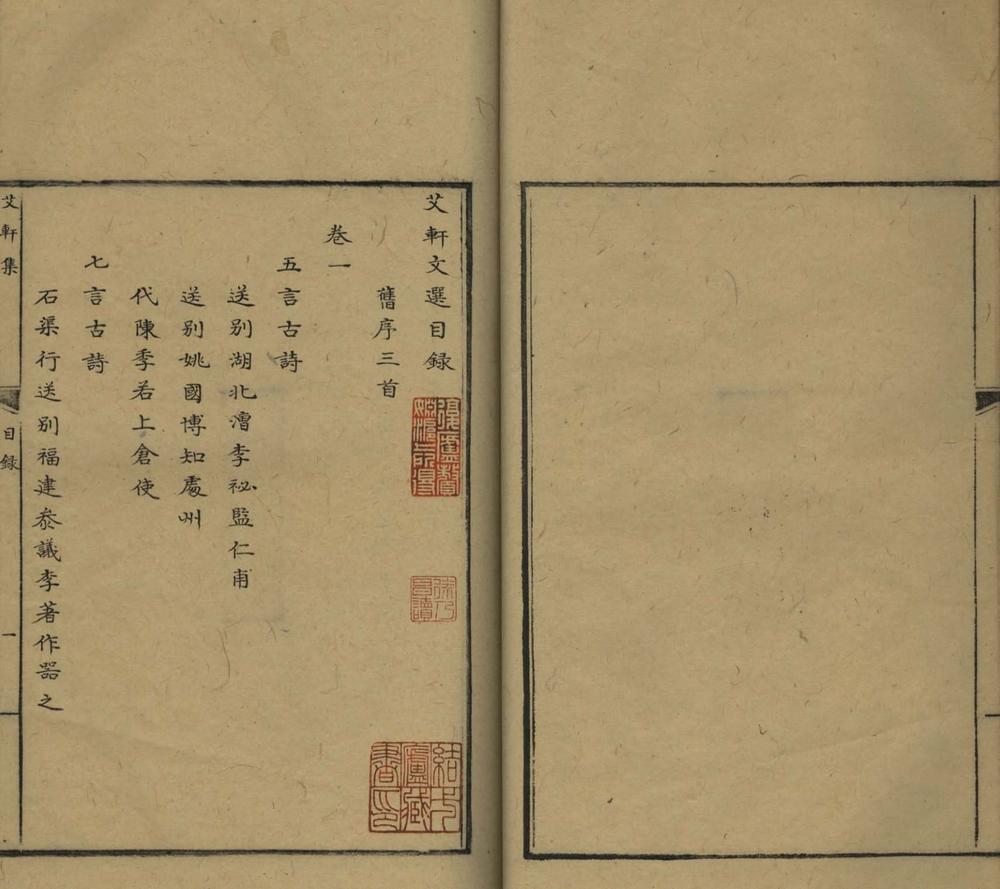 艾軒文選目錄
舊序三首
卷一
五言古詩
送别湖北漕李祕監仁甫
送别姚國博知處州
代陳季若上倉使
七言古詩
石渠行送别福建叅議李著作器之
艾軒集
目錄
一
結弌廬藏書印